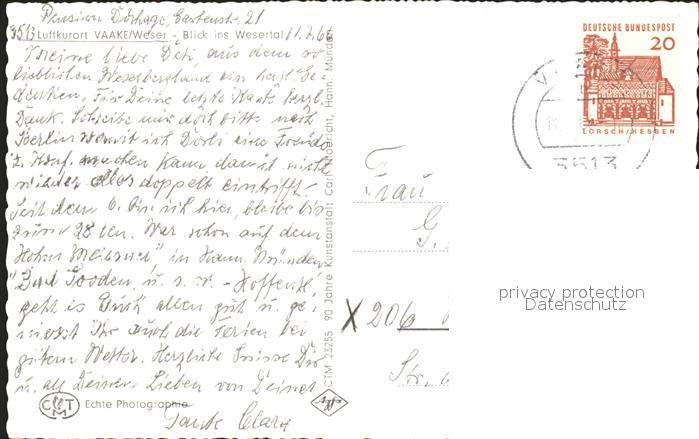 Pension Dörhage, Gartenstr. 21
3513 Luftkurort VAAKE/Weser - Blick ins Wesertal 11.7.6
Meine liebe Deti, aus dem so
lieblichen Weserbergland ein herzl. Ge-
denken. Für Deine letzte Karte herzl.
Dank. Schreibe mir doch bitte nach
Berlin womit ich Dörli eine Freude
z. machen kann damit nicht
wieder alles doppelt eintrifft.
Seit dem 6. bin ich hier, bleibe bis
zum 28ten. War schon auf dem
Hohen Meissner in Hann. Münden
Bad Sooden, u. s. w. - Hoffentl.
geht es Euch allen gut u. ge-
niesst Ihr auch die Ferien bei
gutem Wetter. Herzliche Grüsse Dir
u. all Deinen Lieben von Deiner
Tante Clara
CTM
Echte Photographie
CTM 25255 90 Jahre Kunstanstalt Carl Thoericht, Hann. Münden
DEUTSCHE BUNDESPOST
20
LORSCH/HESSEN
3513
Frau
G.
X 206
Str.
privacy protection
Datenschutz